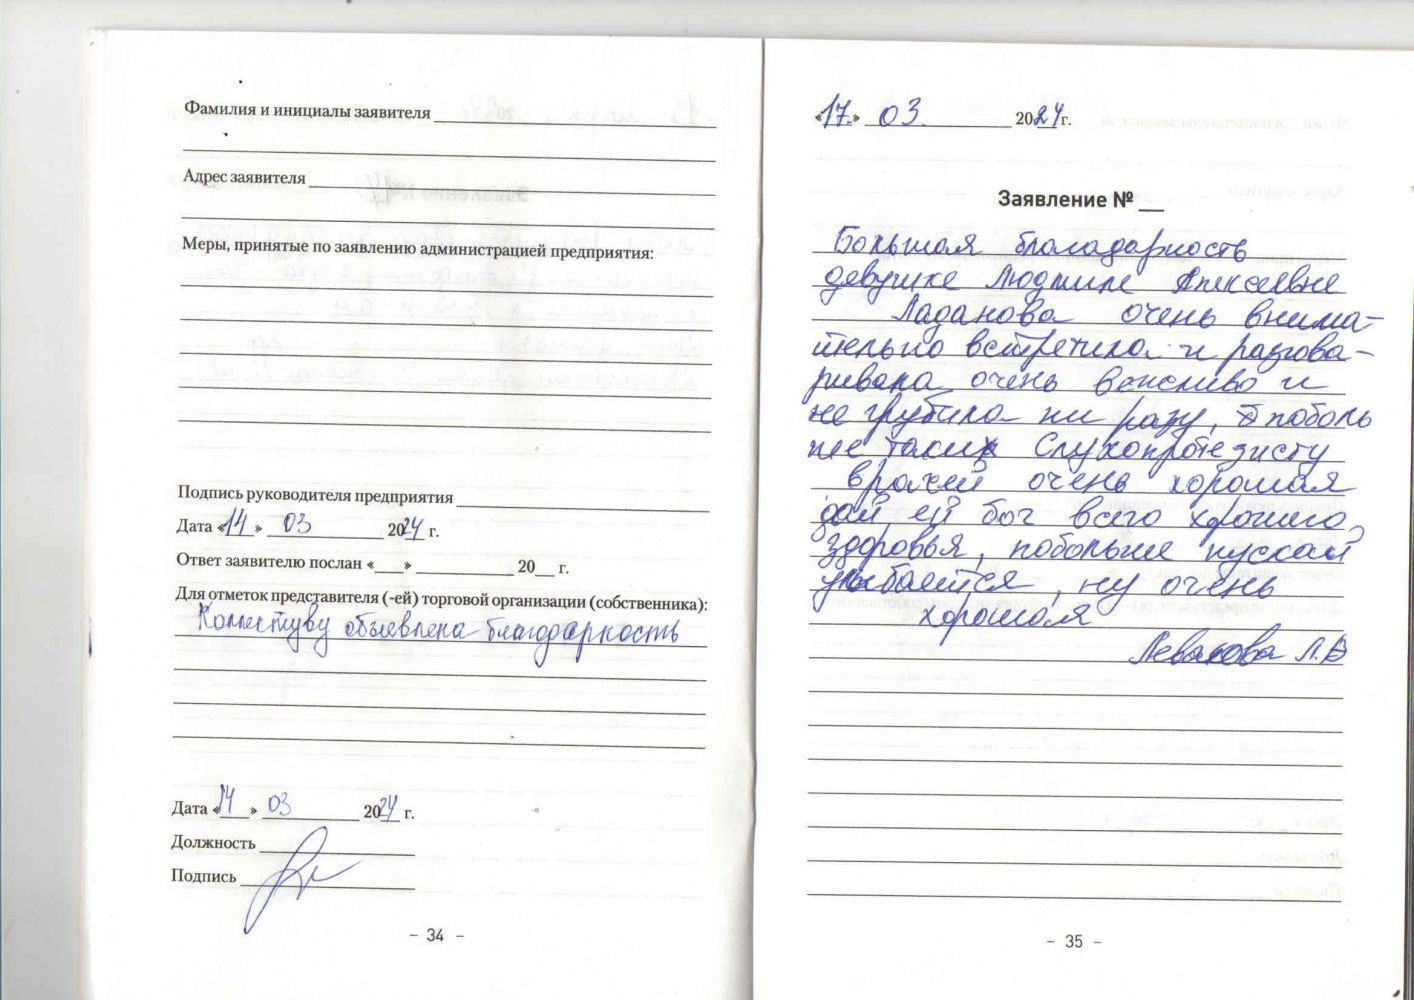 Фамилия и инициалы заявителя
Адрес заявителя
Меры, принятые по заявлению администрацией предприятия:
Подпись руководителя предприятия
Дата «14» 03 2024 г.
Ответ заявителю послан «   » 20   г.
Для отметок представителя (-ей) торговой организации (собственника):
Коллективу объявлена благодарность
Дата «14» 03 2024 г.
Должность
Подпись
- 34 -
«17.» 03. 2024 г.
Заявление №
Большая благадарность
девушке Людмиле Алексеевне
Ладанова очень внима-
тельно встретила и разгова-
ривала очень вежливо и
не грубила ни разу, поболь
ше таких Слухопротезисту
врачей очень хорошая
дай ей бог всего хорошего,
здоровья, побольше пускай
улыбается, ну очень
хорошая
Левакова Л.В
- 35 -